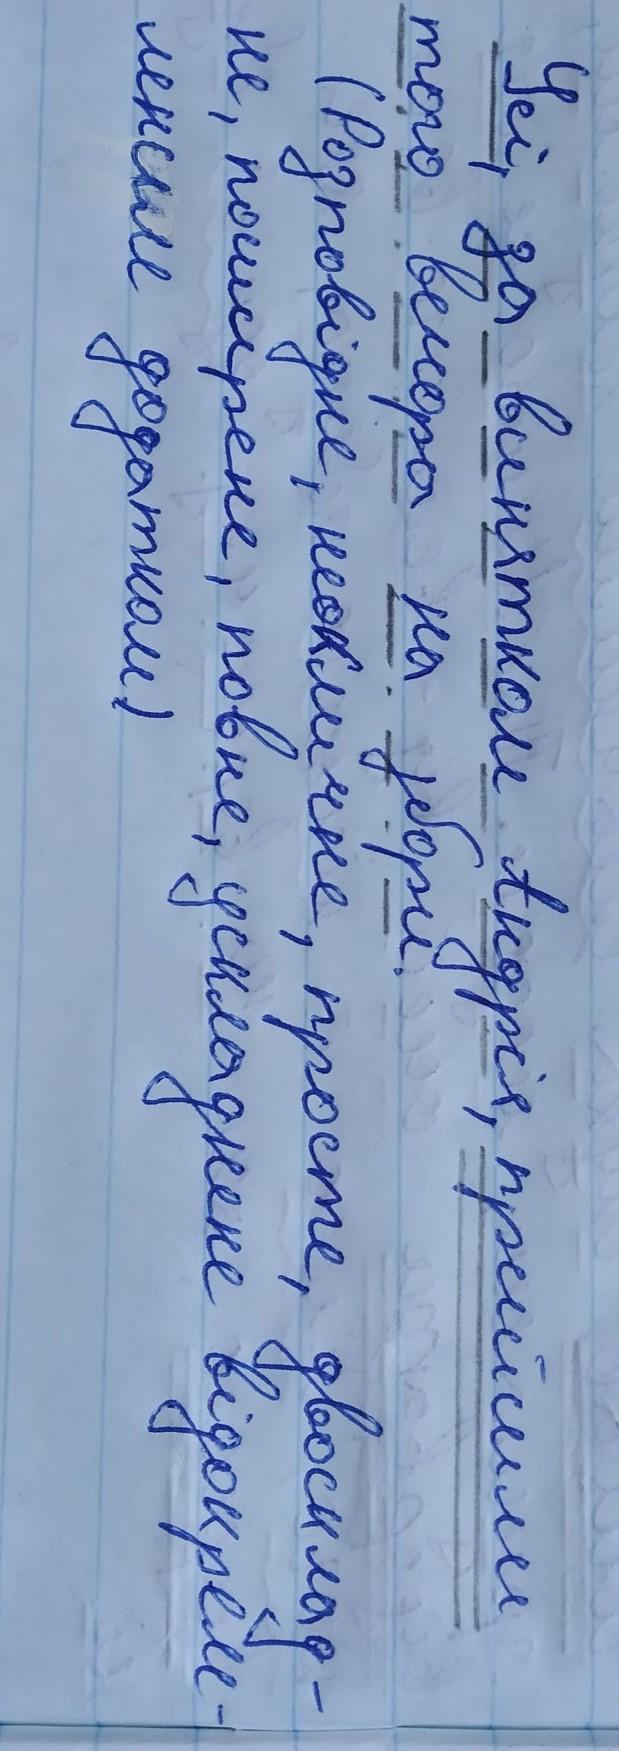 Усі, за винятком Андрія, прийшли
того вечора на збори.
(Розповідне, неокличне, просте, двосклад-
не, поширене, повне, ускладнене відокрем-
леним додатком)